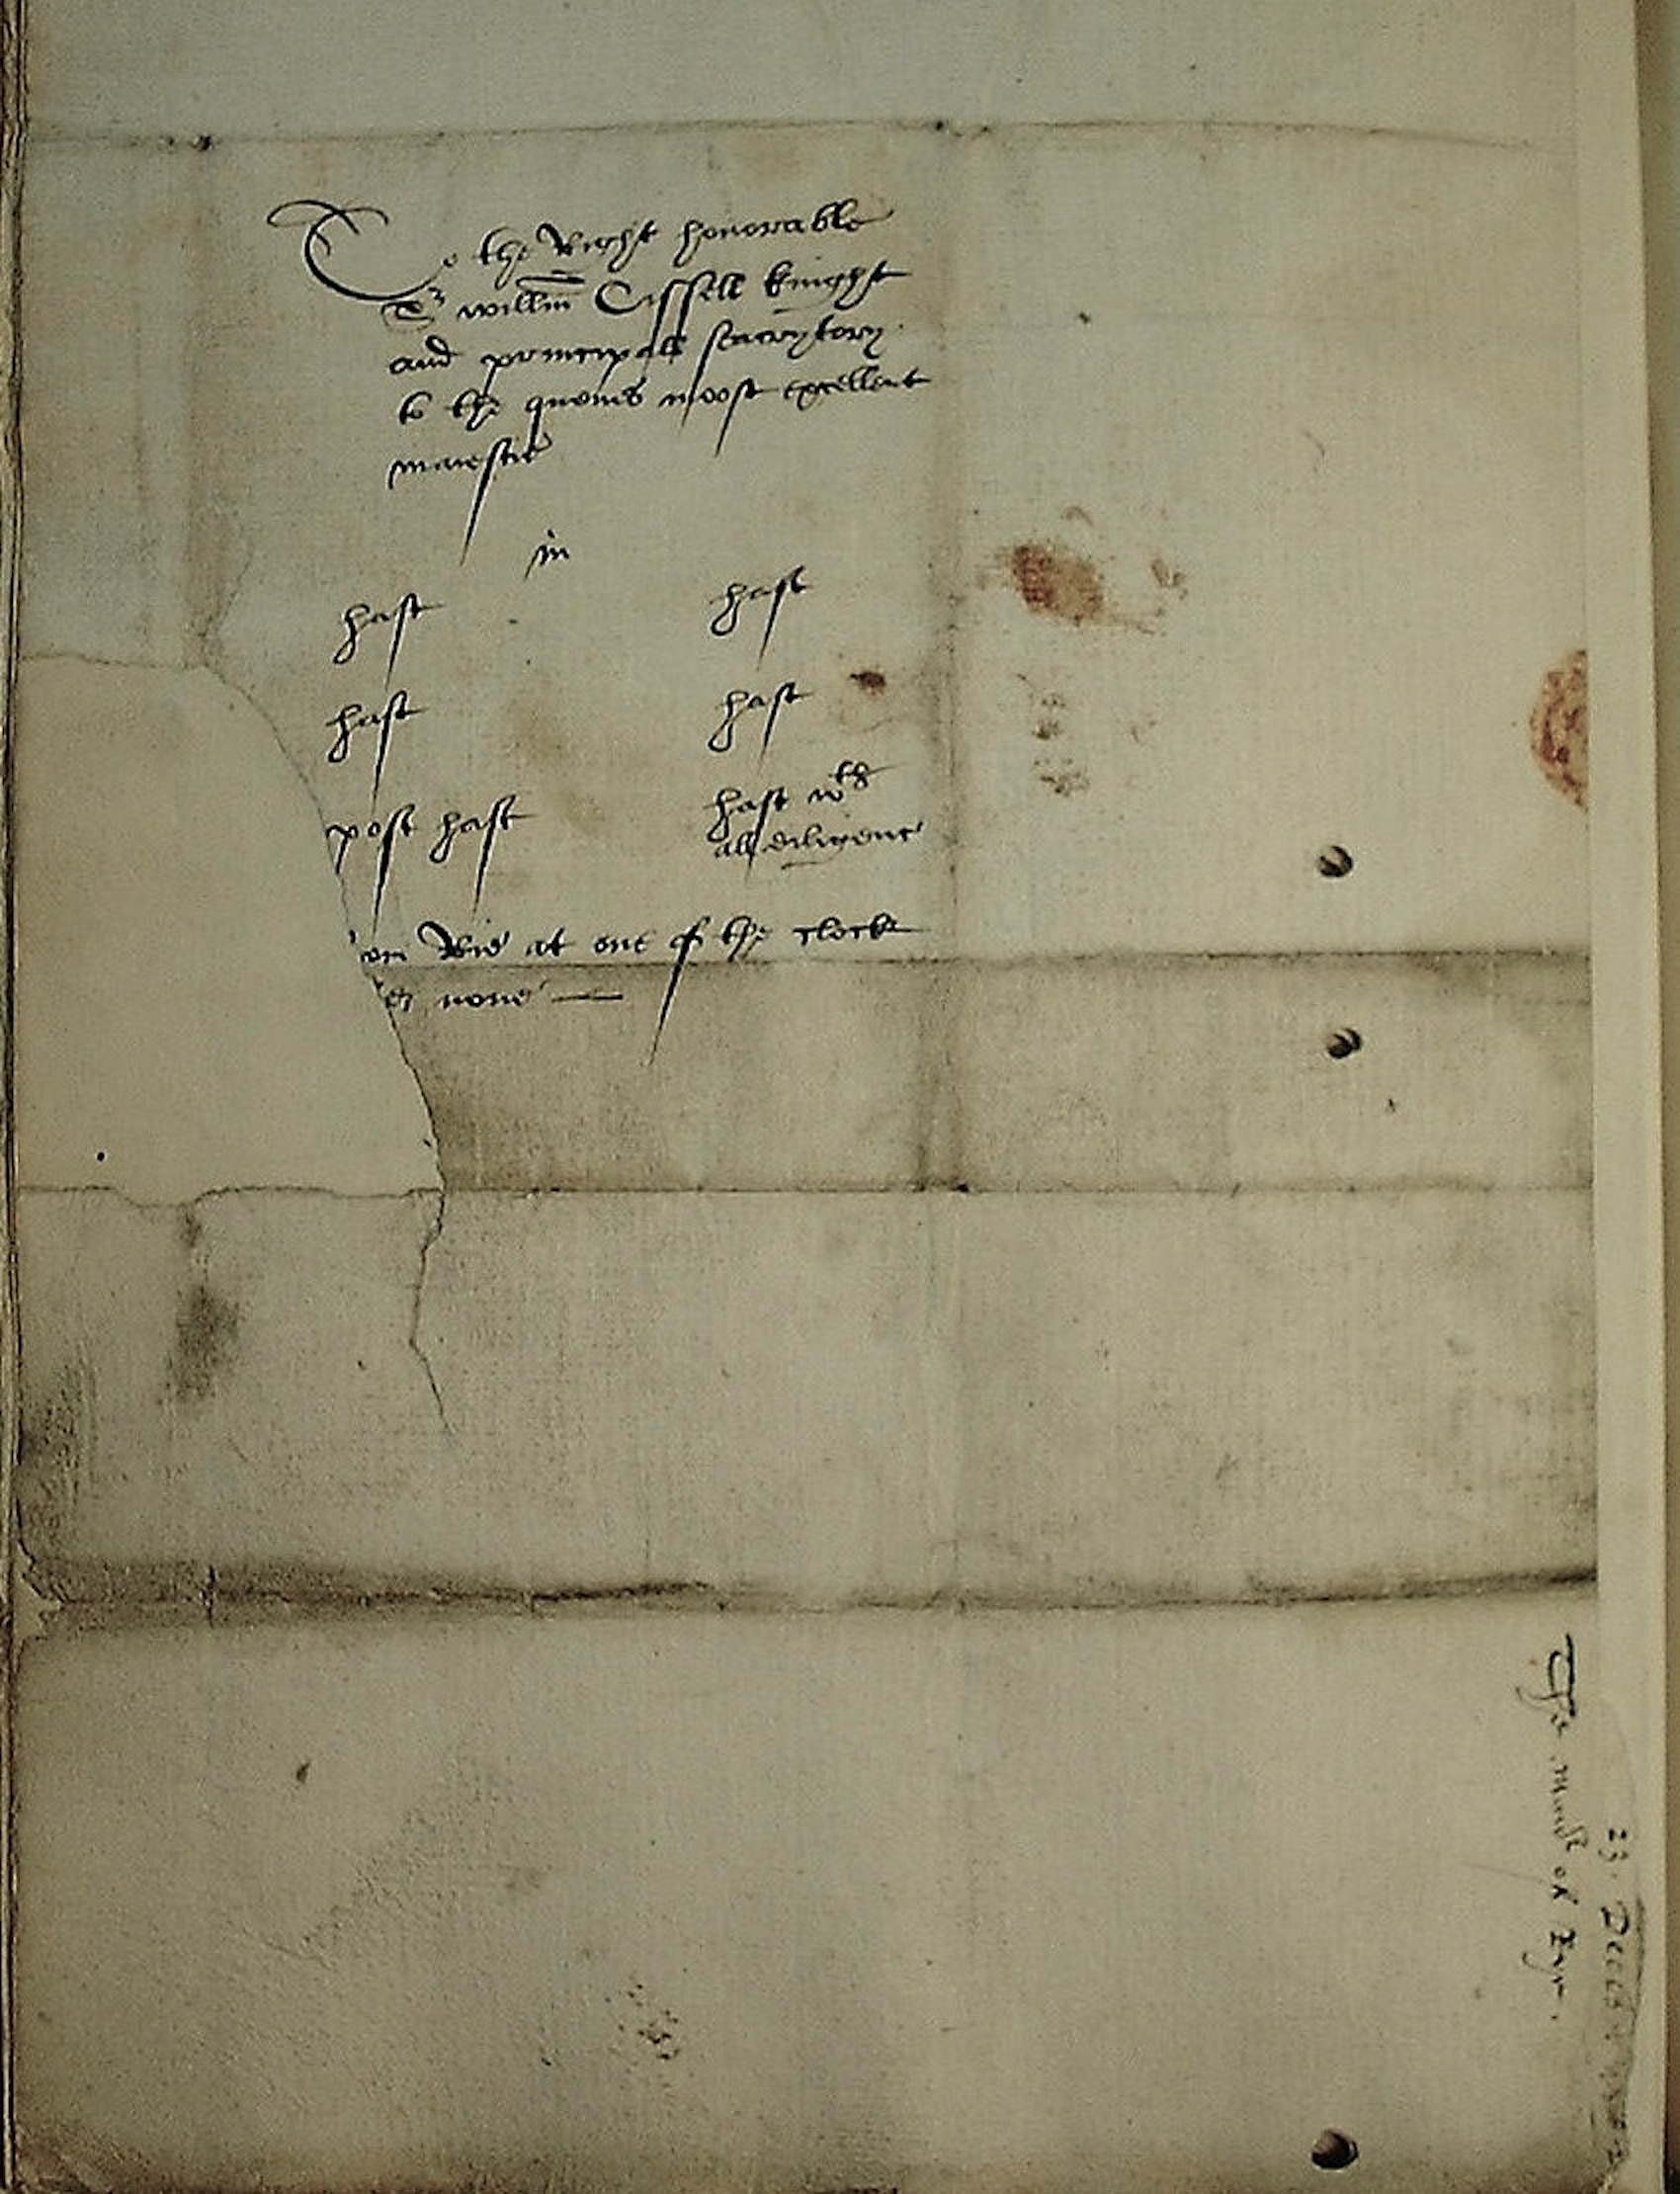 To the Right honorable
Sr willm Cissell knight
and principall seacrytory
to the quenes moost excellent
maiestie
in
hast hast
hast hast
post hast hast wth
all diligence
om Rie at one of the clock
er none
The of Rye.
23. Decemb